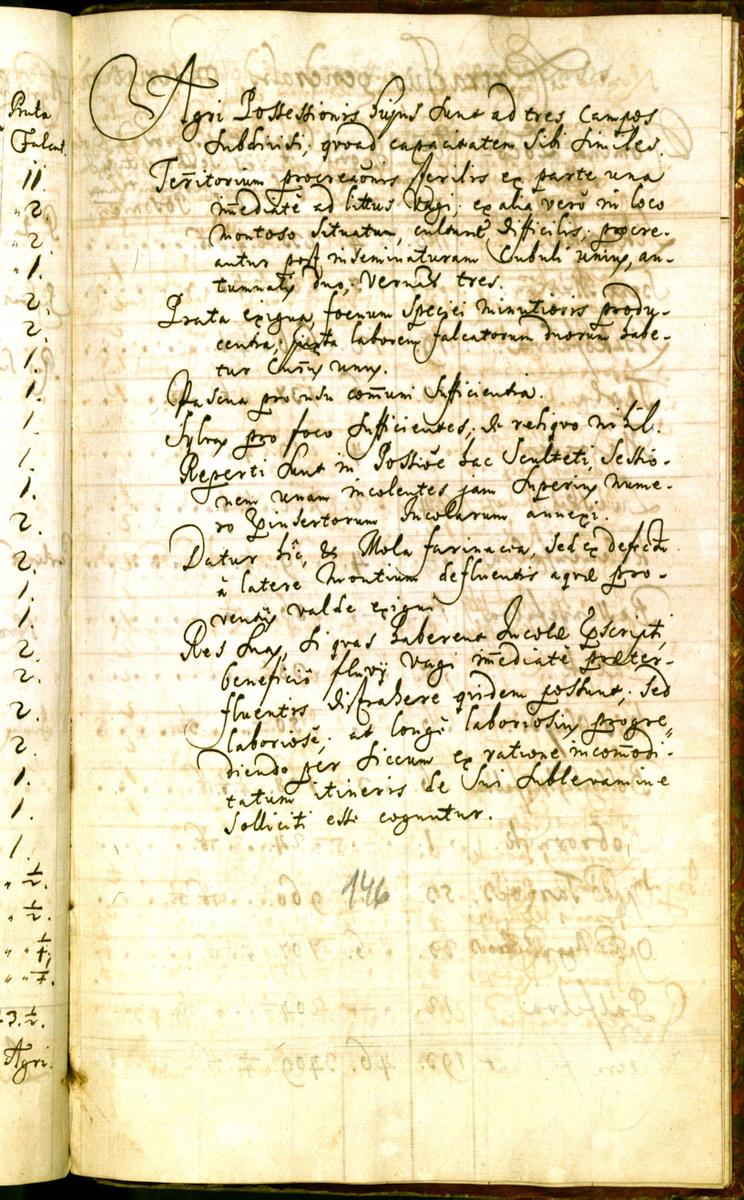 Prata
Falcat.
11.
" 2.
" 2
" 1.
2.
2.
1.
1.
1.
1.
1.
2.
2.
1.
1.
2.
2.
2.
2.
1.
1.
1.
" ½.
" ½.
" " ¼.
" " ¼.
23.½.
Agri
Agri Possessionis hujus sunt ad tres Campos
subdivisi, quoad capacitatem sibi similes.
Territorium procreaōnis sterilis ex parte una
im̄ediatè ad littus Vagi, ex alia verò in loco
montoso situatum, culturæ difficilis, procre-
antur post inseminaturam Cubuli unius, au-
tumnales duo, vernales tres.
Prata exigua, foenum speciei minutioris produ-
centia, juxta laborem falcatorum duorum habe-
tur Currus unus.
Pascua pro usu com̄uni sufficientia.
Sylvæ pro foco sufficientes, de reliquo nihil.
Reperti sunt in Possiōe hac Sculteti, Sessio-
nem unam incolentes jam superius nume-
ro Exinsertorum Incolarum annexi.
Datur hîc, & Mola farinacia, sed ex defectu
à latere montium defluentis aquæ pro-
ventus valde exigui
Res suas, si quas haberent Incolæ Exscripti,
beneficiô fluvij Vagi im̄ediatè præter-
fluentis distrahere quidem possunt, sed
laboriosè, at longè laboriosius progre-
diendo per siccum ex ratione incom̄odi-
tatum itineris de sui sublevamine
solliciti esse coguntur.
146